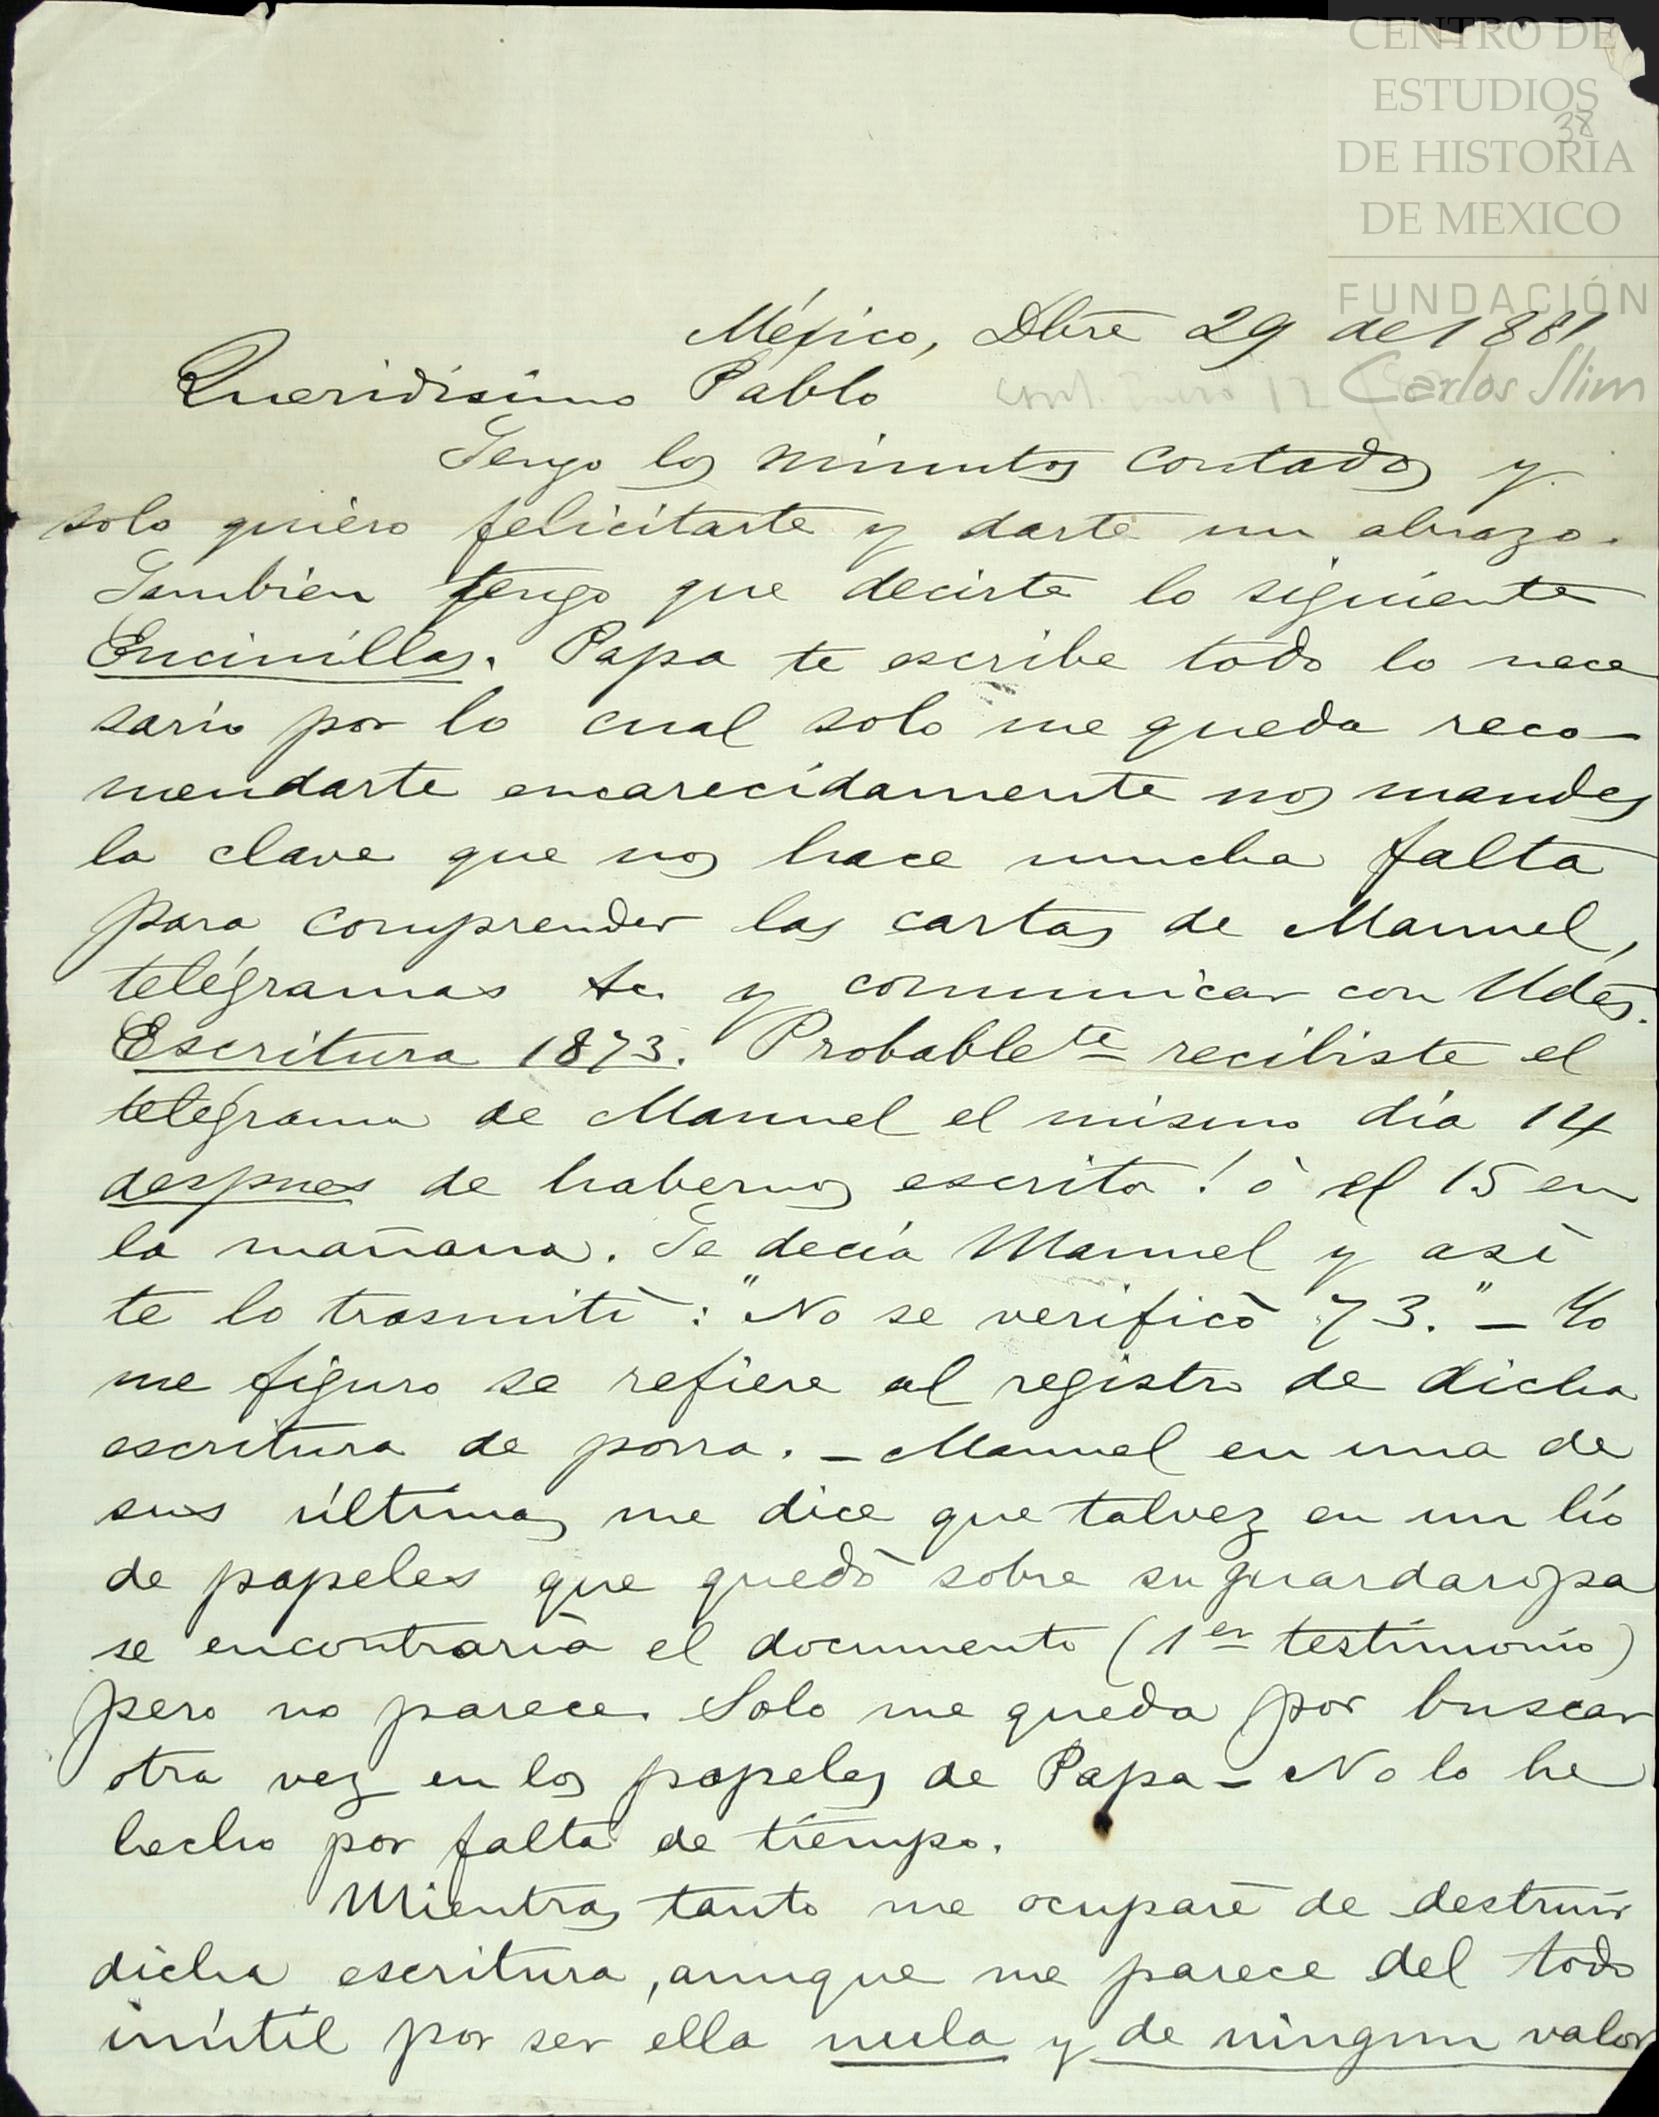 CENTRO DE
ESTUDIOS
38
DE HISTORIA
DE MEXICO
FUNDACIÓN
Carlos Slim
México, Dbre 29 de 1881
Queridísimo Pablo
Tengo los minutos contados y
solo quiero felicitarte y darte un abrazo.
Tambien tengo que decirte lo siguiente
Encinillas. Papa te escribe todo lo nece
sario por lo cual solo me queda reco-
mendarte encarecidamente nos mandes
la clave que nos hace mucha falta
para comprender las cartas de Manuel,
telégramas &c. y comunicar con Udes.
Escritura 1873. Probablete recibiste el
telégrama de Manuel el mismo dia 14
despues de habernos escrito! ò el 15 en
la mañana. Te decía Manuel y asì
te lo trasmitì: "No se verificò 73." - Yo
me figuro se refiere al registro de dicha
escritura de porra. - Manuel en una de
sus últimas me dice que talvez en un lío
de papeles que quedò sobre su guardaropa
se encontraría el documento (1er testimonio)
pero no parece. Solo me queda por buscar
otra vez en los papeles de Papa - No lo he
hecho por falta de tiempo.
Mientras tanto me ocuparè de destruir
dicha escritura, aunque me parece del todo
inútil por ser ella nula y de ningun valor